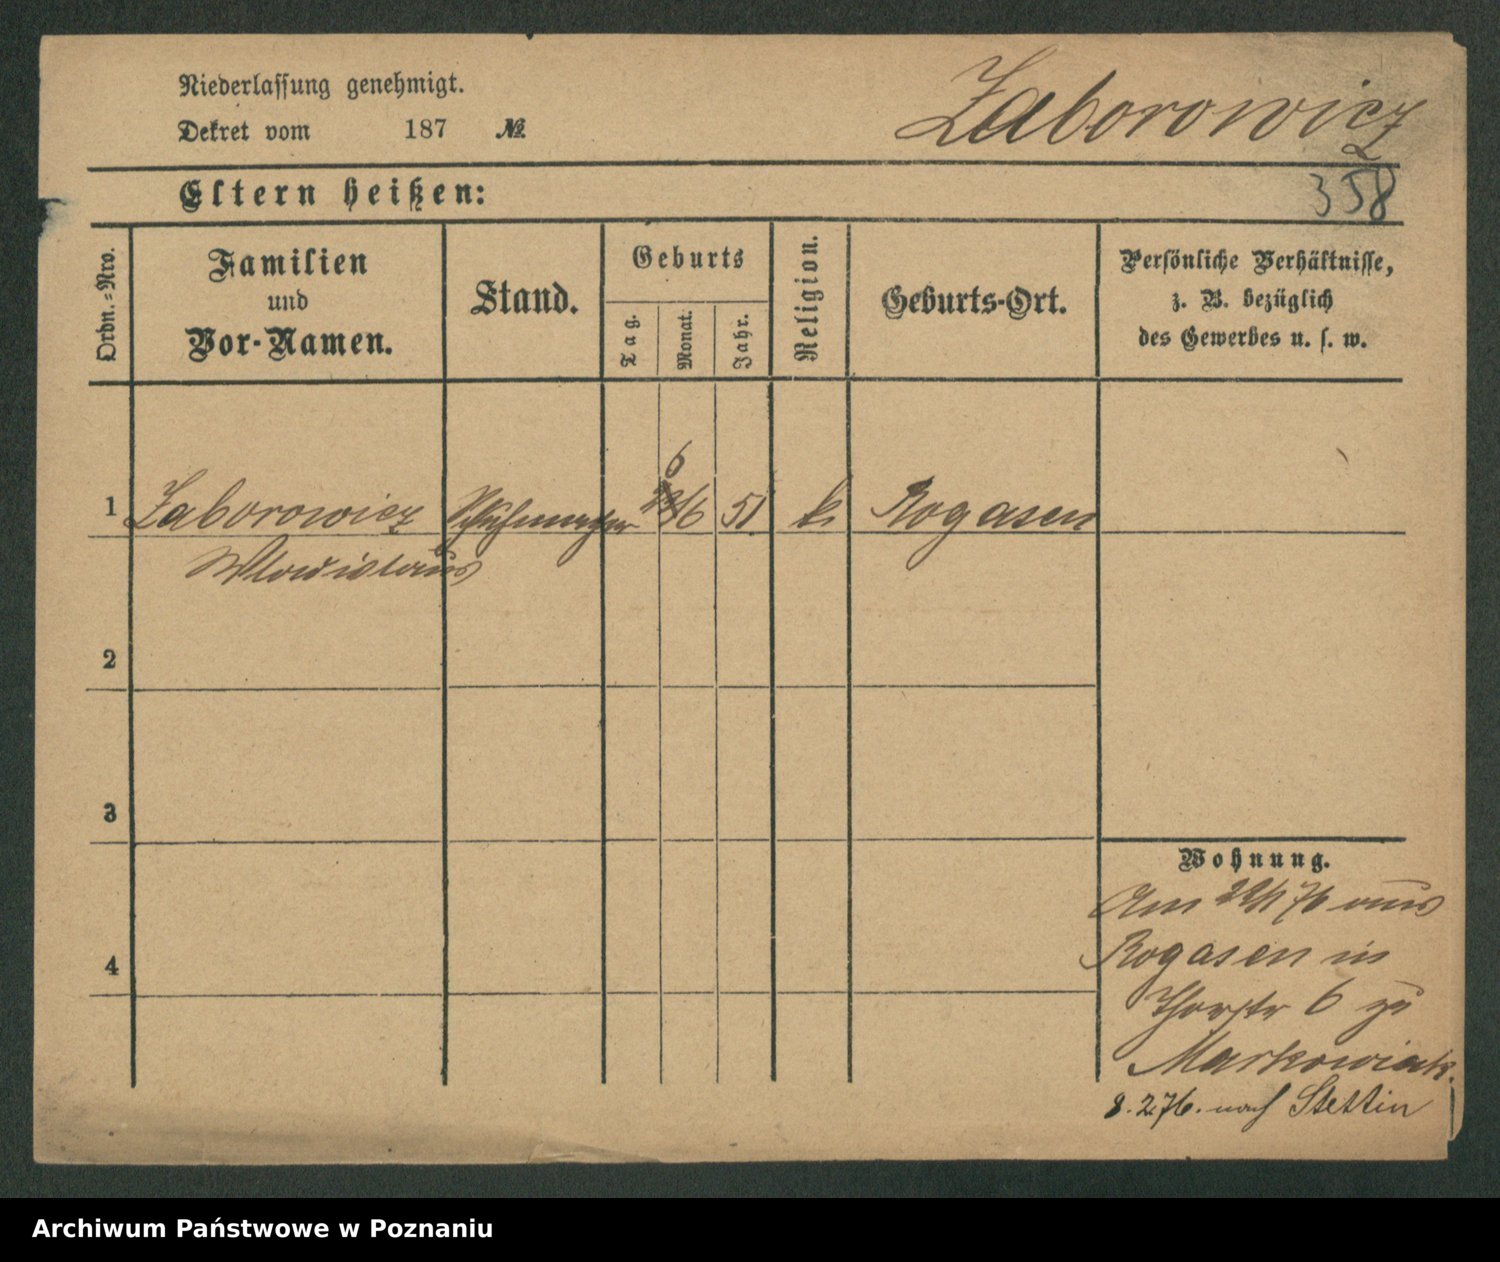 Niederlassung genehmigt.
Dekret vom 187 №
Zaborowicz
Eltern heißen:
358
Ordn.=Nro.
Familien
und
Vor-Namen.
Stand.
Geburts
Tag.
Monat.
Jahr.
Religion.
Geburts-Ort.
Persönliche Verhältnisse,
z. B. bezüglich
des Gewerbes u. s. w.
6
1 Zaborowicz 6 51 k. Rogasen
Wladislaus
2
3
4
Wohnung.
Am 22/1 76 aus
Rogasen in
6 zu
Markowiak.
8.2.76. nach Stettin
Archiwum Państwowe w Poznaniu